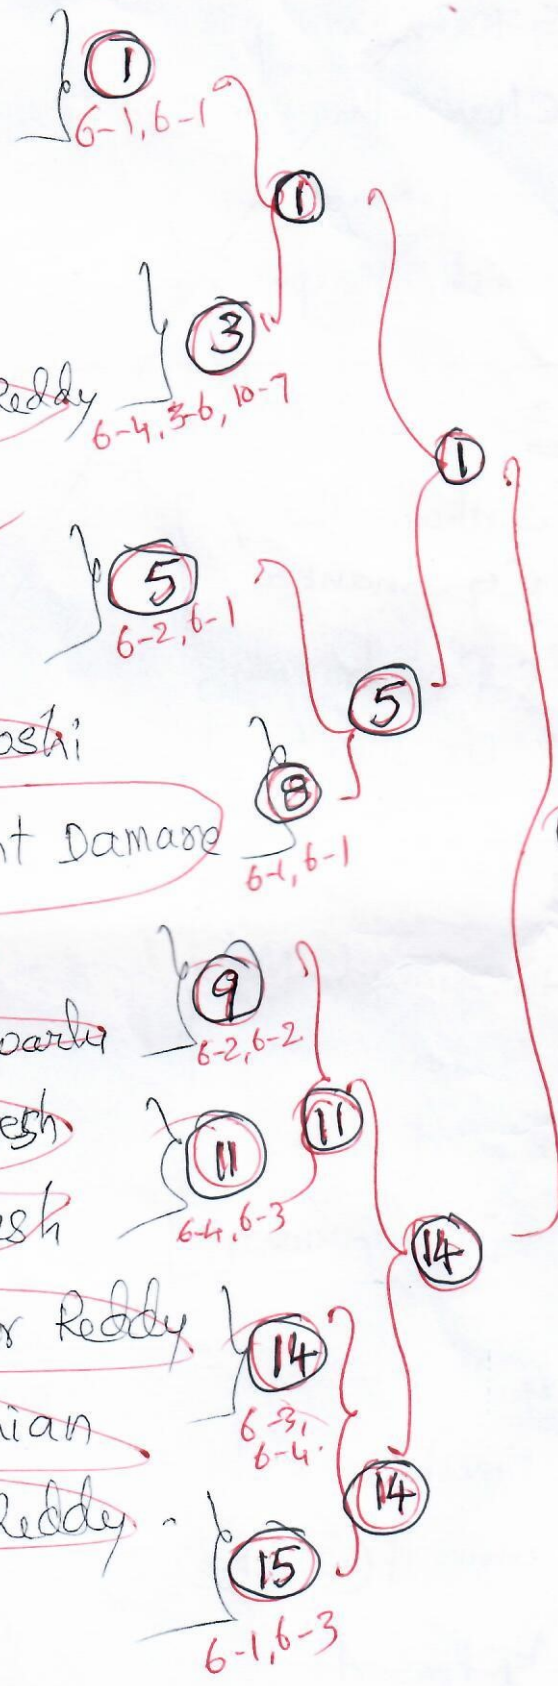 1
6-1, 6-1
1
3
Reddy
6-4, 3-6, 10-7
1
5
6-2, 6-1
5
oshi
8
nt Damare
6-1, 6-1
9
oarlu
6-2, 6-2
esh
11
11
esh
6-4, 6-3
14
r Reddy
14
6-3,
nian
6-4.
Reddy
14
15
6-1, 6-3